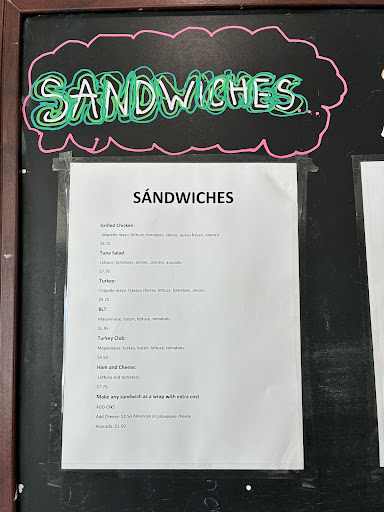 SANDWICHES
SÁNDWICHES
Grilled Chicken:
Jalapeño mayo, lettuce, tomatoes, onions, queso fresco, cilantro
Tuna Salad:
Lettuce, tomatoes, onions, cilantro, avocado
$7.95
Turkey:
Chipotle mayo, Oaxaca cheese, lettuce, tomatoes, onions
$9.25
BLT:
Mayonnaise, bacon, lettuce, tomatoes
$5.95
Turkey Club:
Mayonnaise, turkey, bacon, lettuce, tomatoes
$9.50
Ham and Cheese:
Lettuce and tomatoes
$7.75
Make any sandwich as a wrap with extra cost.
ADD-ONS
Add Cheese: $1.50 American or provolone cheese
Avocado: $1.50